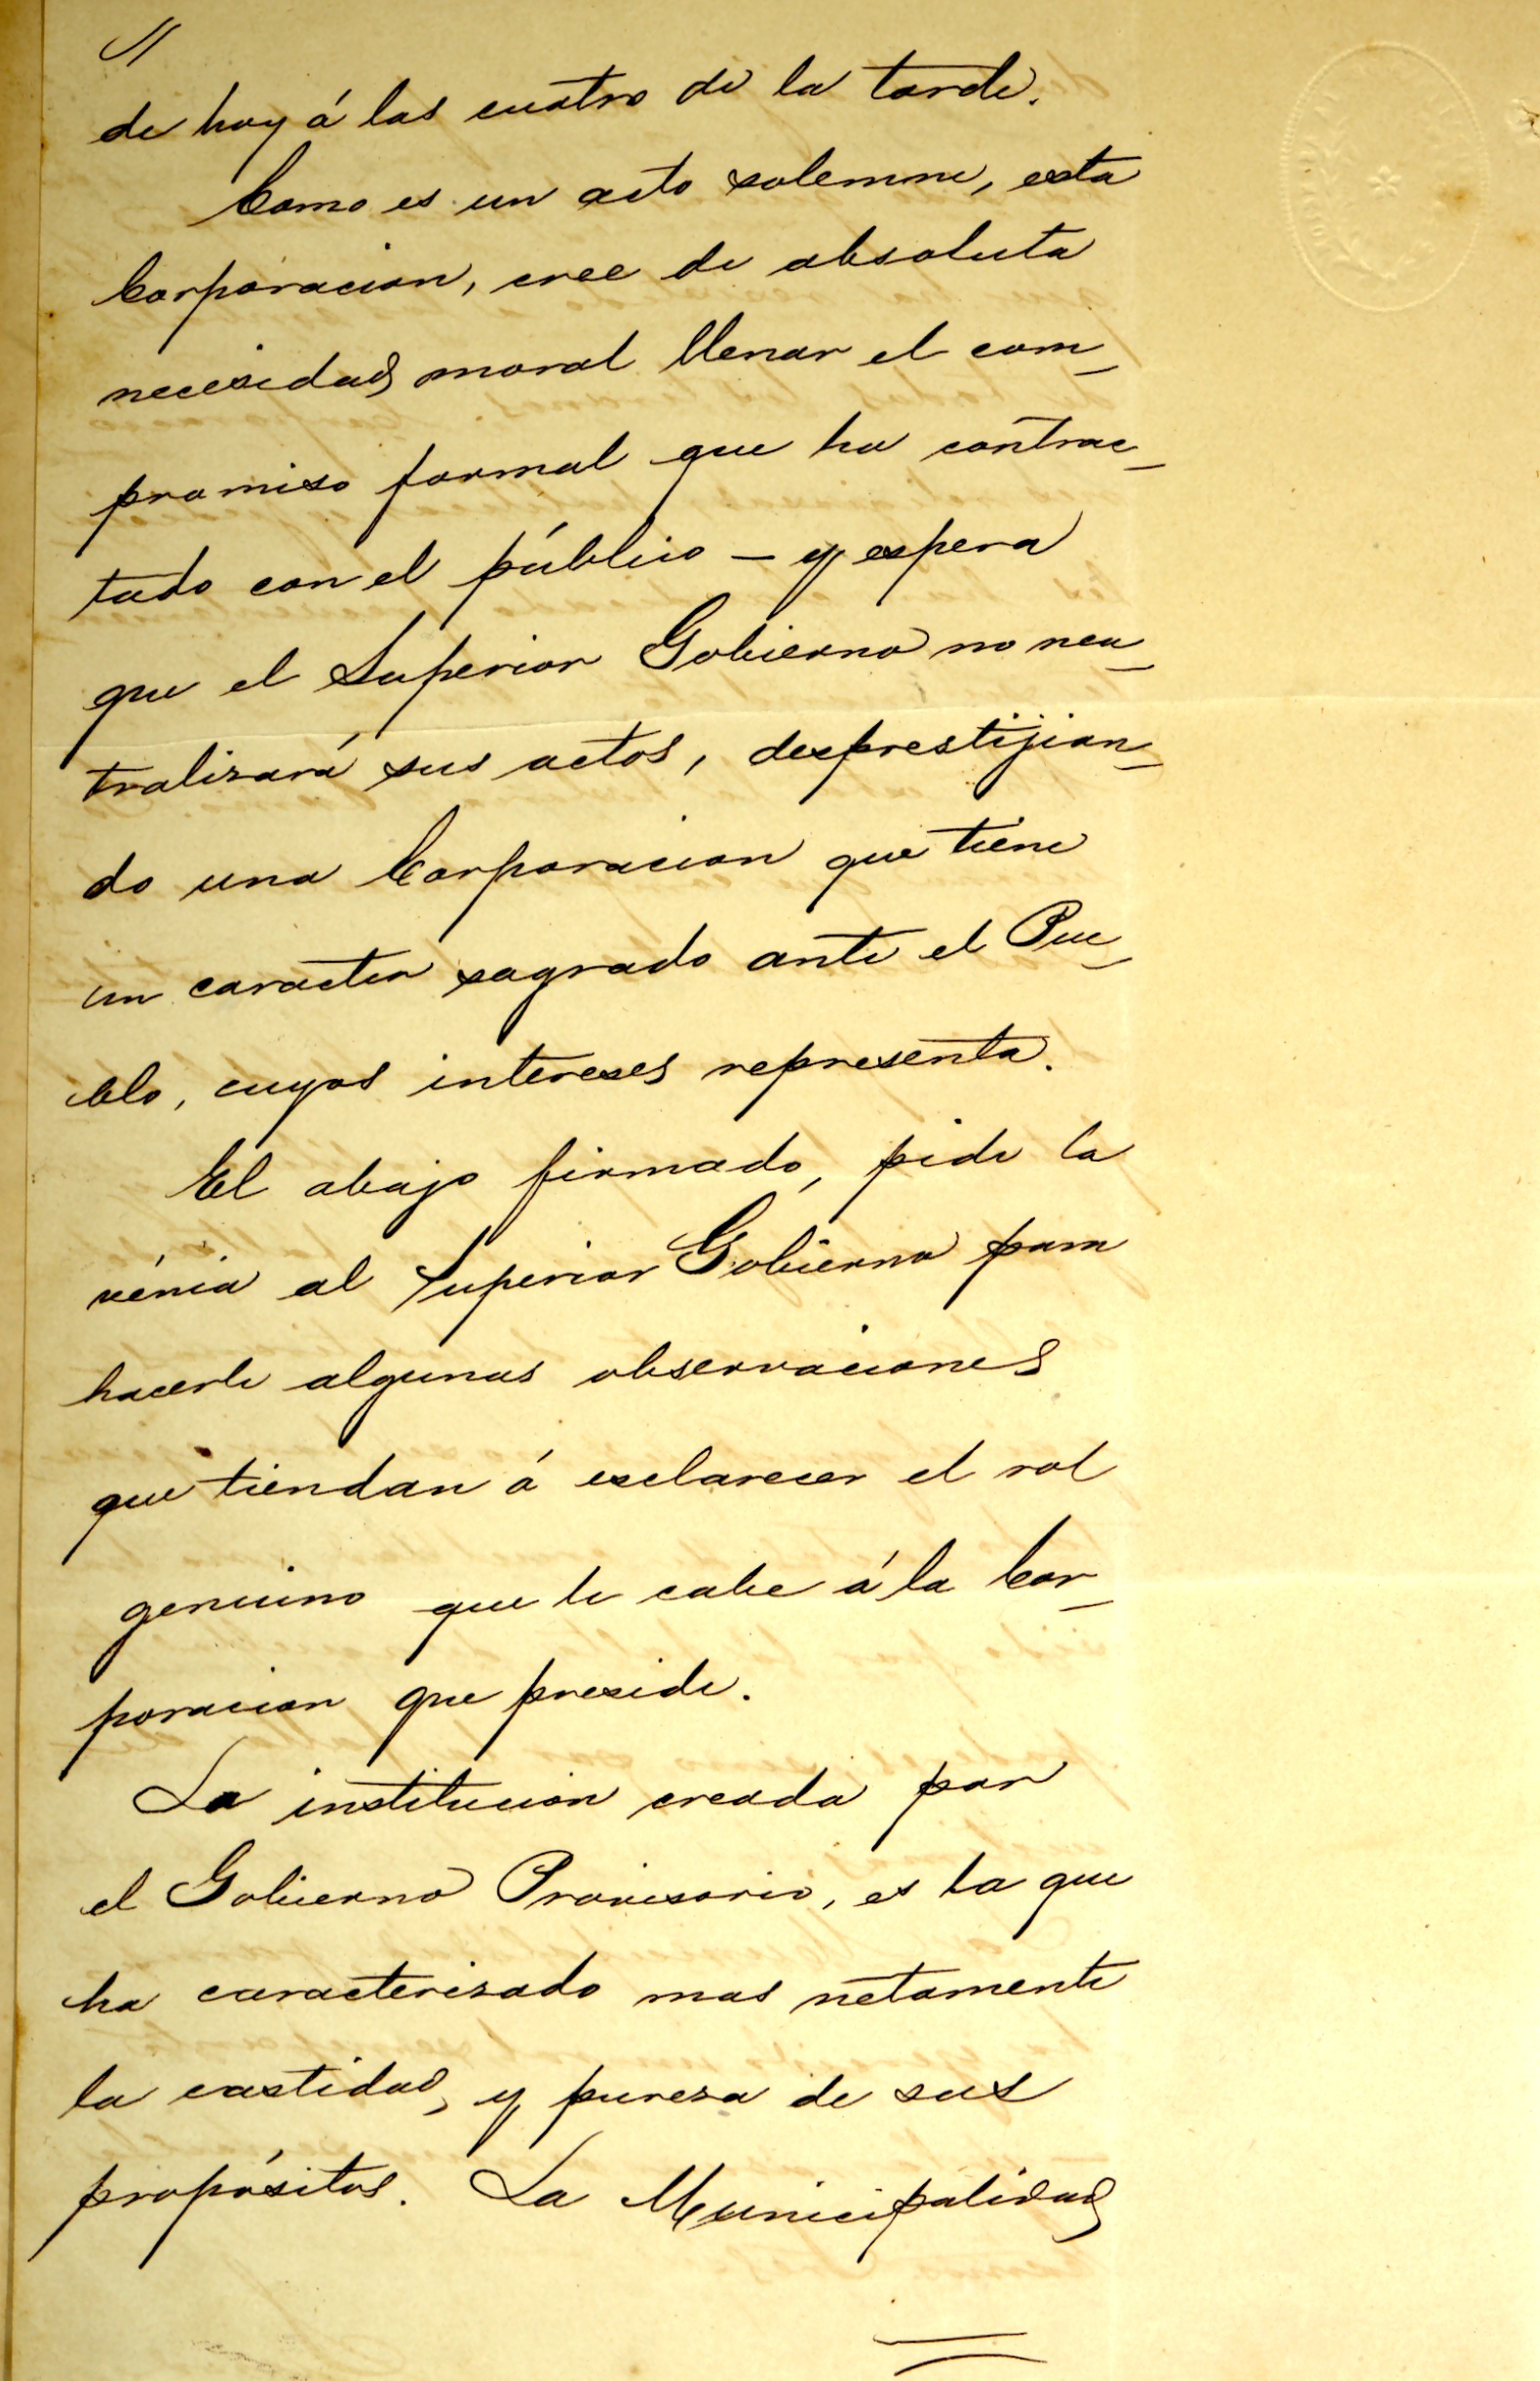 //
de hoy á las cuatro de la tarde.
Como es un acto solemne, esta
Corporacion, cree de absoluta
necesidad moral llenar el com_
promiso formal que ha contrac_
tado con el público – y espera
que el Superior Gobierno no neu_
tralizará sus actos, desprestijian_
do una Corporacion que tiene
un caracter sagrado ante el Pue_
blo, cuyos intereses representa.
El abajo firmado, pide la
vénia al Superior Gobierno para
hacerle algunas observaciones
que tiendan á esclarecer el rol
genuino que le cabe á la Cor_
poracion que preside.
La institucion creada por
el Gobierno Provisorio, es la que
ha caracterizado mas netamente
la castidad, y pureza de sus
propósitos. La Municipalidad